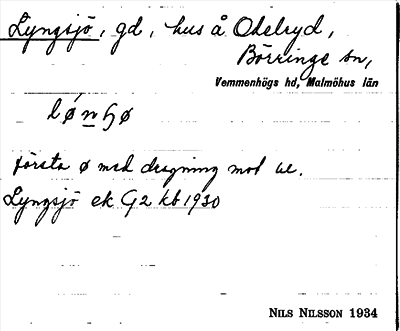 Lyngsjö, gd, hus å Odelryd,
Börringe sn,
Vemmenhögs hd, Malmöhus län
första ø med dragning mot
Lyngsjö ek G2 kb 1930
NILS NILSSON 1934